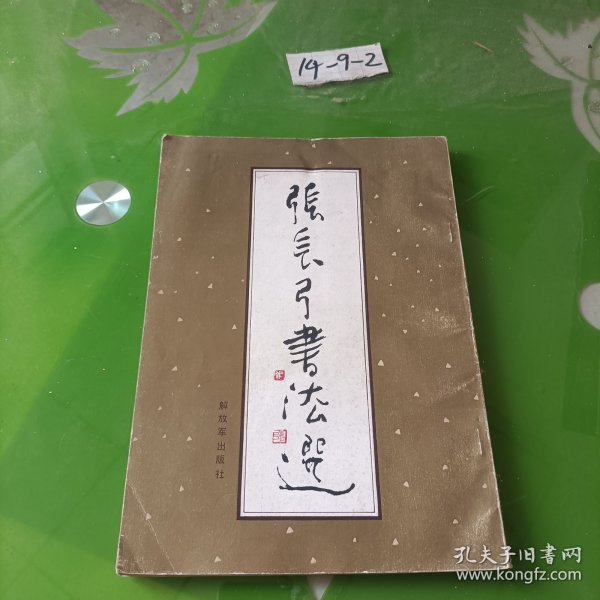 14-9-2
張長弓書法選
解放军出版社
孔夫子旧书网
www.kongfz.com